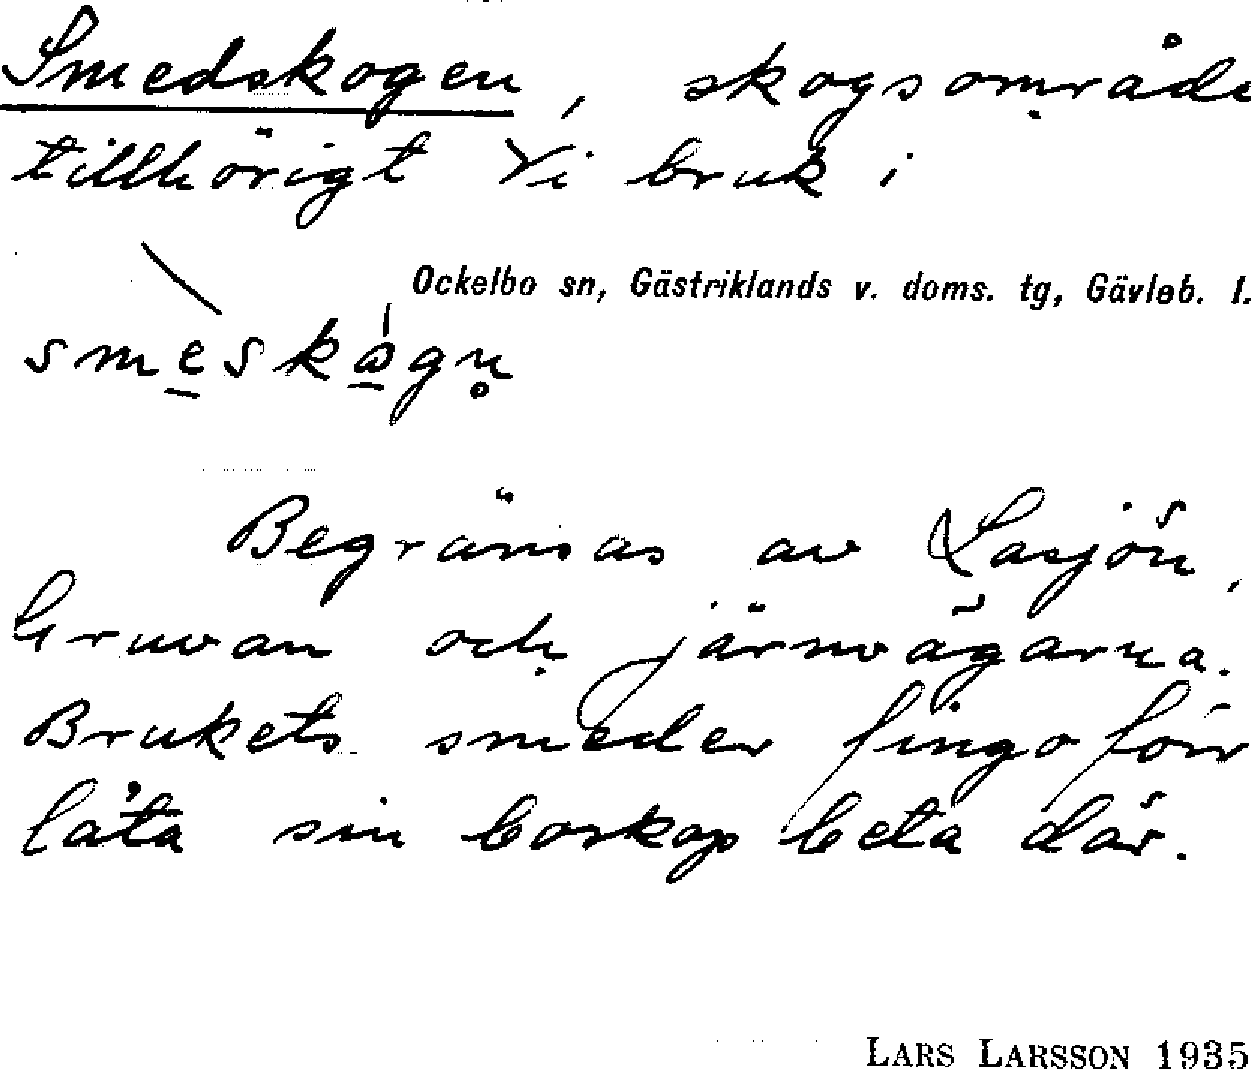 Smedskogen, skogsområde
tillhörigt Vi bruk i
Ockelbo sn, Gästriklands v. doms. tg, Gävleb. l.
Begränsas av Lasjön,
Gruvan och järnvägarna.
Brukets smeder fingo förr
låta sin boskap beta där.
LARS LARSSON 1935